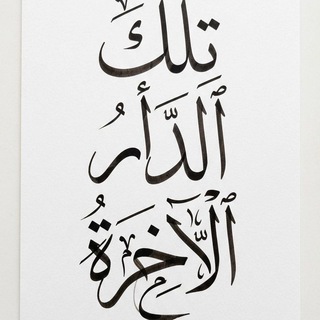 تلك
ٱلدَّأرُ
ٱلْآخِرَةُ